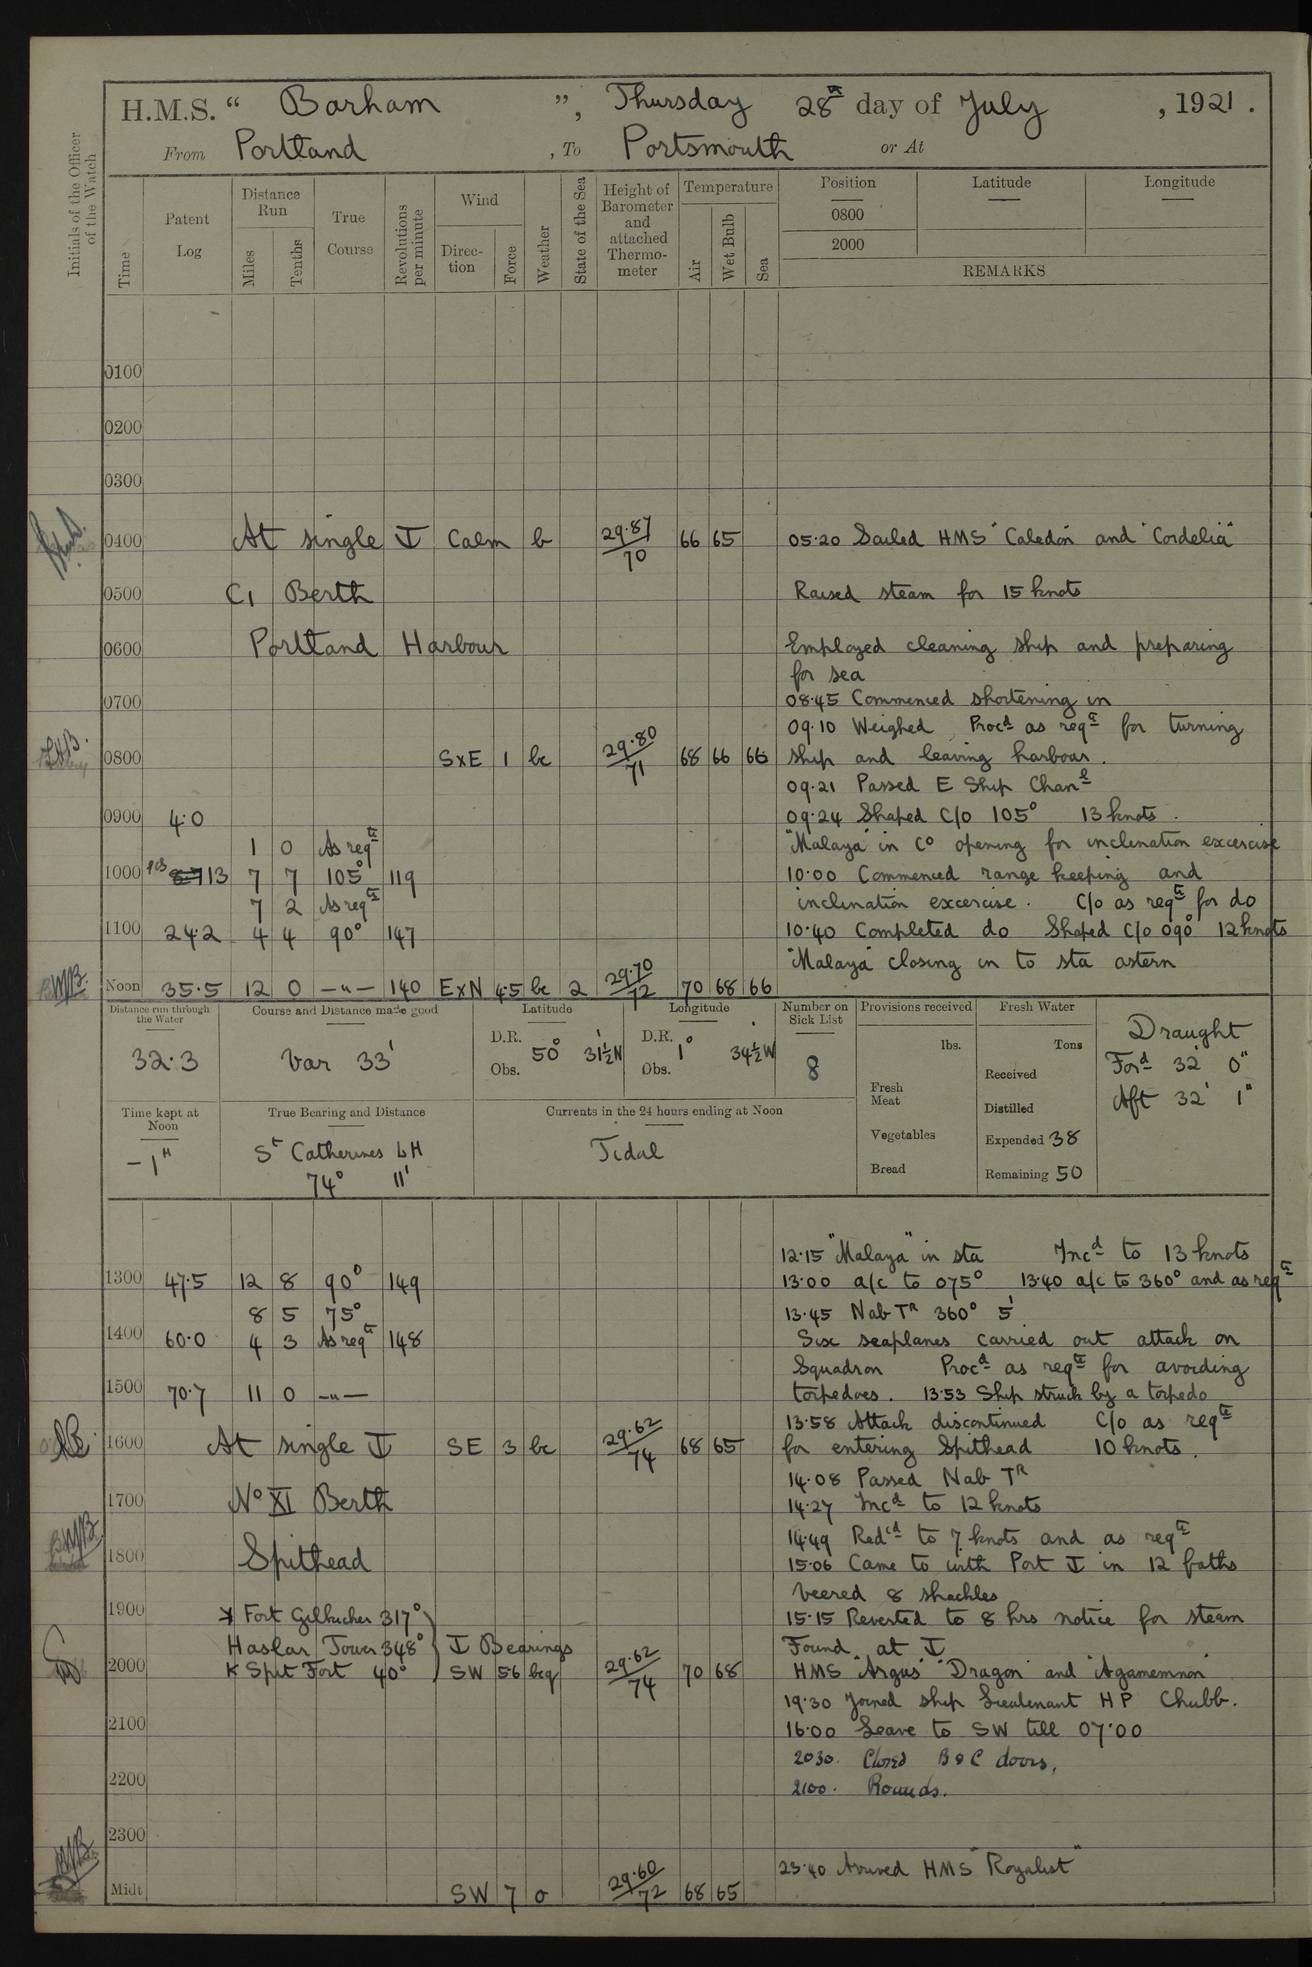 H.M.S. “ Barham ”, Thursday 28th day of July , 1921.
From Portland , To Portsmouth or At
Initials of the Officer of the Watch
Time
Patent Log
Distance Run
Miles
Tenths
True Course
Revolutions per minute
Wind
Direc-tion
Force
Weather
State of the Sea
Height of Barometer and attached Thermo-meter
Temperature
Air
Wet Bulb
Sea
Position
0800
2000
Latitude
Longitude
REMARKS
0100
0200
0300
0400 At single Calm b 29.87/70 66 65 05.20 Sailed HMS "Caledon" and "Cordelia"
0500 C1 Berth Raised steam for 15 knots
0600 Portland Harbour Employed cleaning ship and preparing
for sea
0700 08.45 Commenced shortening in
09.10 Weighed Procd as reqte for turning
0800 SxE 1 bc 29.80/71 68 66 66 ship and leaving harbour.
09.21 Passed E Ship Chanl
0900 4.0 09.24 Shaped C/o 105° 13 knots.
1 0 As reqte "Malaya" in Co opening for inclination excercise
1000 13 7 7 105° 119 10.00 Commenced range keeping and
7 2 As reqte inclination excercise. C/o as reqte for do
1100 24.2 4 4 90° 147 10.40 Completed do Shaped C/o 090° 12 knots
"Malaya" closing in to sta astern
Noon 35.5 12 0 —"— 140 ExN 4.5 bc 2 29.70/72 70 68 66
Distance run through the Water
32.3
Course and Distance made good
Var 33'
Latitude
D.R. 50° 31½'N
Obs.
Longitude
D.R. 1° 34½'W
Obs.
Number on Sick List
8
Provisions received
lbs.
Fresh Meat
Vegetables
Bread
Fresh Water
Tons
Received
Distilled
Expended 38
Remaining 50
Draught
Ford 32' 0"
Aft 32' 1"
Time kept at Noon
-1H
True Bearing and Distance
St Catherines LH
74° 11'
Currents in the 24 hours ending at Noon
Tidal
12.15 "Malaya" in sta Incd to 13 knots
1300 47.5 12 8 90° 149 13.00 a/c to 075° 13.40 a/c to 360° and as reqte
8 5 75° 13.45 Nab Tr 360° 5'
1400 60.0 4 3 As reqte 148 Six seaplanes carried out attack on
Squadron Procd as reqte for avoiding
1500 70.7 11 0 —"— torpedoes. 13.53 Ship struck by a torpedo
13.58 Attack discontinued C/o as reqte
1600 At single SE 3 bc 29.62/74 68 65 for entering Spithead 10 knots.
14.08 Passed Nab Tr
1700 No XI Berth 14.27 Incd to 12 knots
14.49 Redcd to 7 knots and as reqte
1800 Spithead 15.06 Came to with Port in 12 faths
veered 8 shackles
1900 Fort Gilkicker 317° 15.15 Reverted to 8 hrs notice for steam
Haslar Tower 348° Bearings Found at
2000 Spit Fort 40° SW 5.6 bcq 29.62/74 70 68 HMS "Argus" "Dragon" and "Agamemnon"
19.30 Joined ship Lieutenant H P Chubb.
2100 16.00 Leave to SW till 07.00
2030. Closed B & C doors,
2200 2100. Rounds.
2300
23.40 Arrived HMS "Royalist"
Midt SW 7 o 29.60/72 68 65